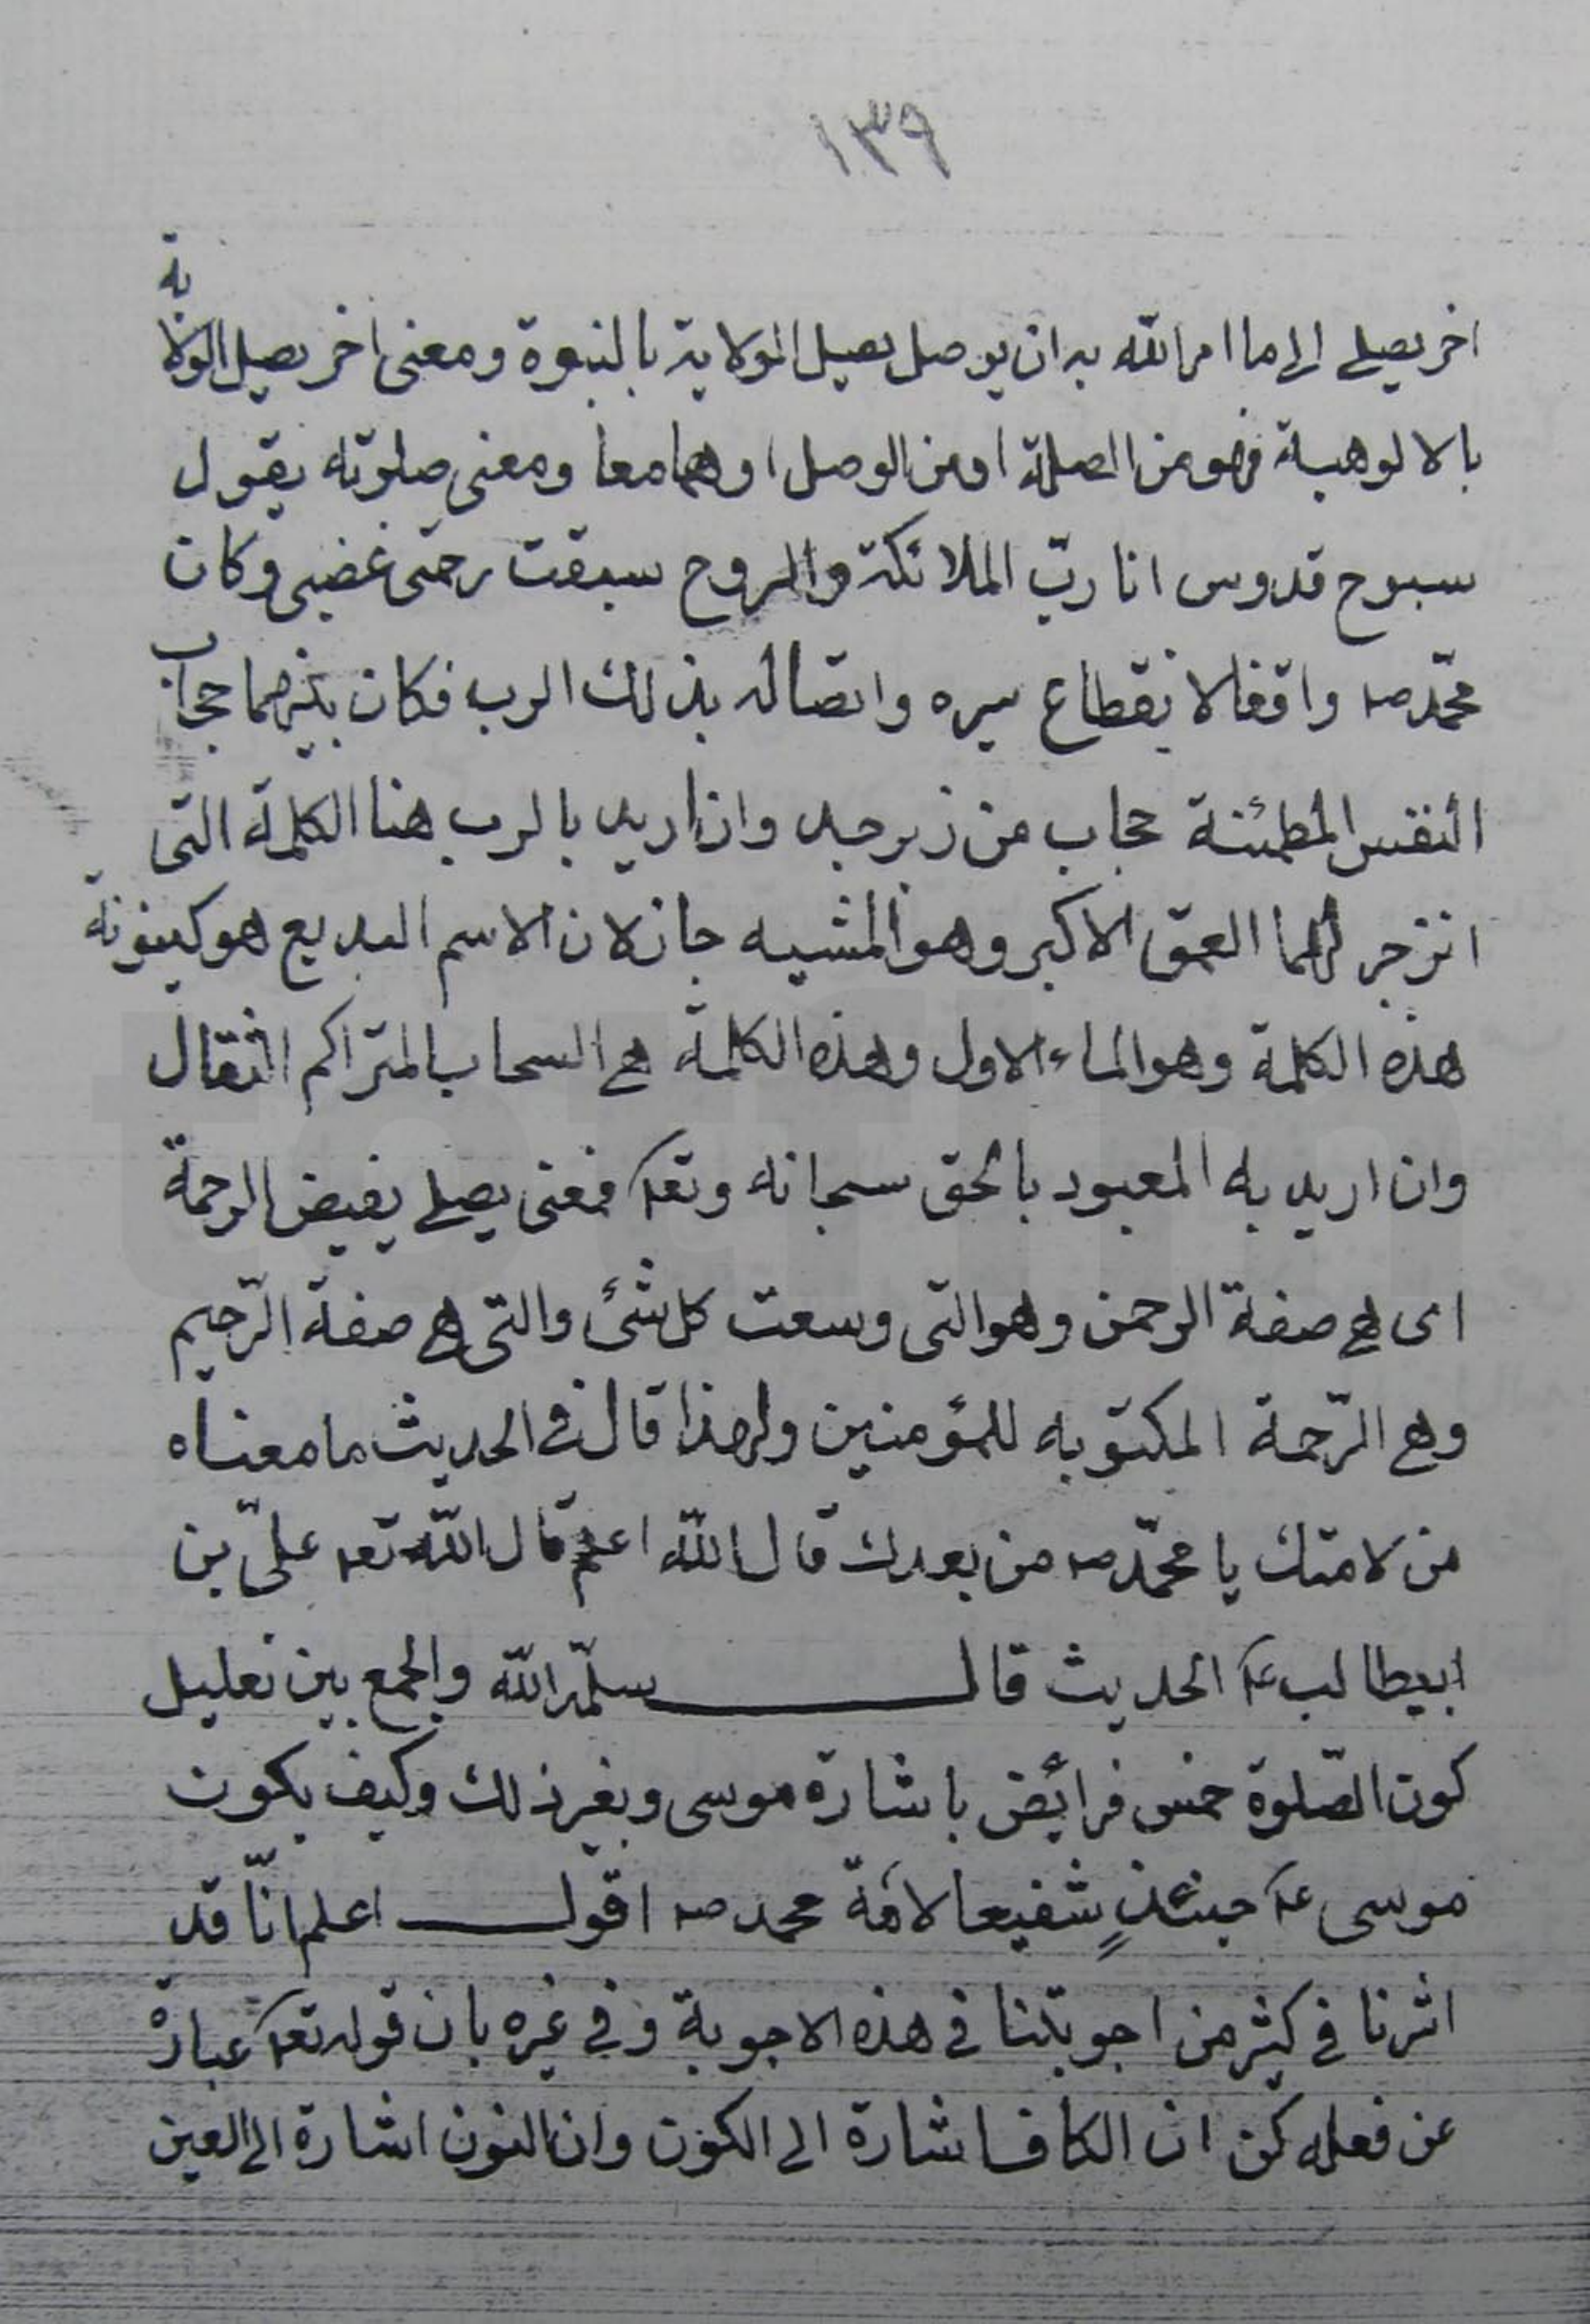 ١٣٩
اخر يصلي الى ما امر الله به ان يوصل يصيل الولاية بالنبوة ومعنى اخر يصيل الولاية
بالالوهية فهو من الصلة او من الوصل او هما معا ومعنى صلوته يقول
سبوح قدوس انا ربّ الملائكة والروح سبقت رحمتى غضبى وكان
محمّد صه واقفا لانقطاع سيره واتصاله بذلك الرب فكان بينهما حجاب
النفس المطمئنة حجاب من زبرجد وان اريد بالرب هنا الكلمة التى
انزجر لها العمق الاكبر وهو المشيه جاز لان الاسم البديع هو كينونة
هذه الكلمة وهو الماء الاول وهذه الكلمة هى السحاب المتراكم الثقال
وان اريد به المعبود بالحق سبحانه وتعه فمعنى يصلى يفيض الرحمة
اى هى صفة الرحمن وهو التى وسعت كل شئ والتى هى صفة الرّحيم
وهى الرّحمة المكتوبه للمؤمنين ولهذا قال فى الحديث ما معناه
من لامتك يا محمّد صه من بعدك قال الله اعلم قال الله تعه علىّ بن
ابيطالب عه الحديث قال سلّمه الله والجمع بين تعليل
كون الصّلوة خمس فرائض باشارة موسى وبغير ذلك وكيف يكون
موسى عه حينئذٍ شفيعا لامّة محمد صه اقول اعلم انّا قد
اشرنا فى كثير من اجوبتنا فى هذه الاجوبة وفي غيره بان قوله تعه عبارة
عن فعله كن ان الكاف اشارة الى الكون وان النون اشارة الى العين